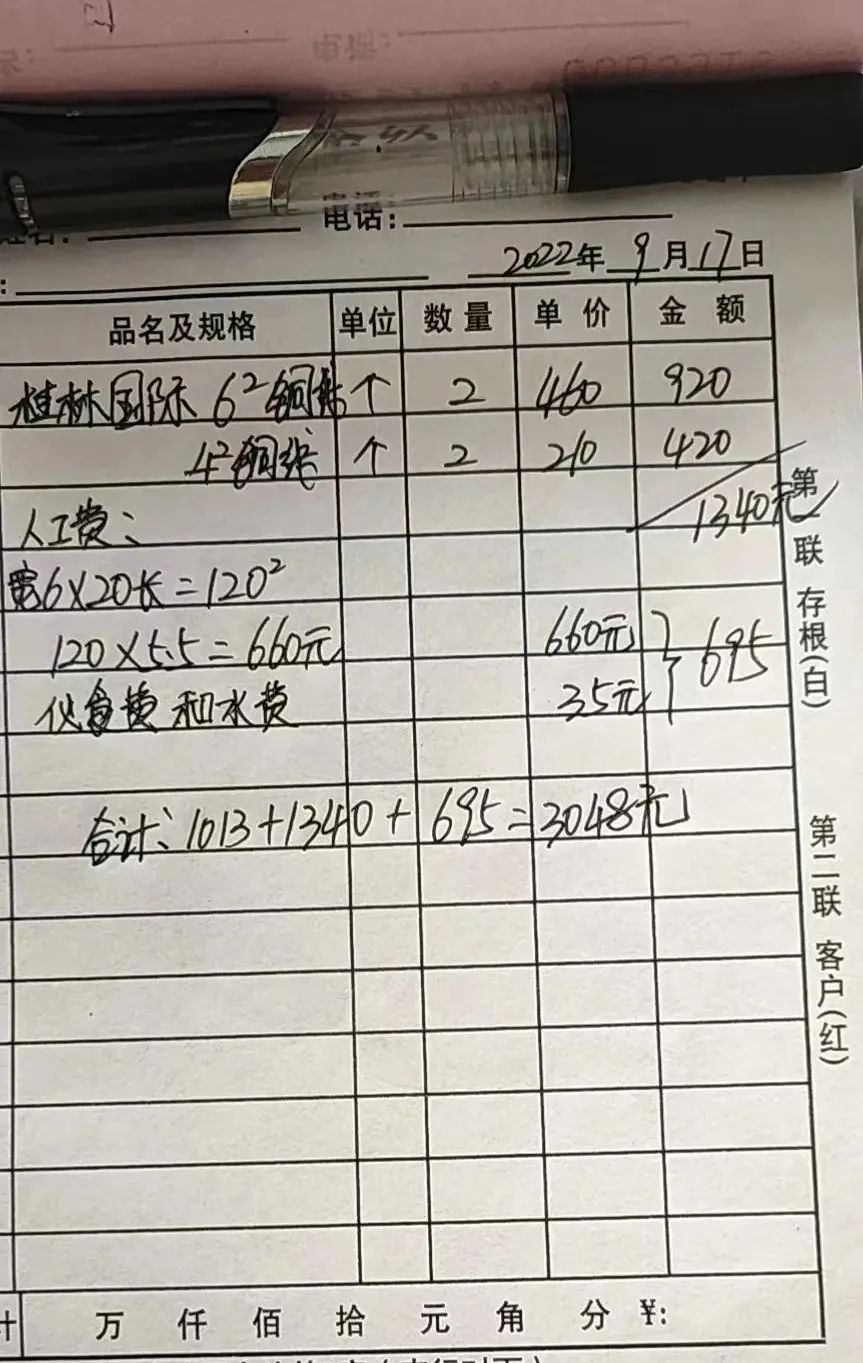 电话:
2022年 9月17日
品名及规格 单位 数量 单价 金额
桂林国际 6² 铜线 个 2 460 920
4² 铜线 个 2 210 420
1340元
人工费:
宽6×20长=120²
120×5.5=660元 660元
695
伙食费和水费 35元
合计:1013+1340+695=3048元
万 仟 佰 拾 元 角 分 ¥:
第一联 存根(白)
第二联 客户(红)